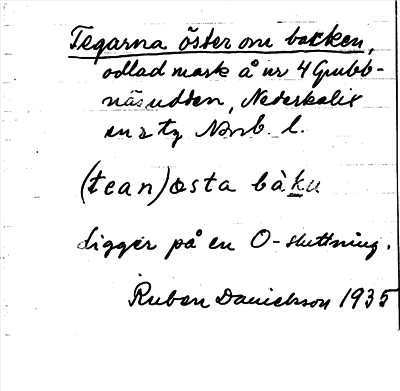 Tegarna öster om backen,
odlad mark å nr 4 Grubb-
näsudden, Nederkalix
sn
(tean) östa bàku
Ligger på en O-sluttning.
Ruben Danielsson 1935